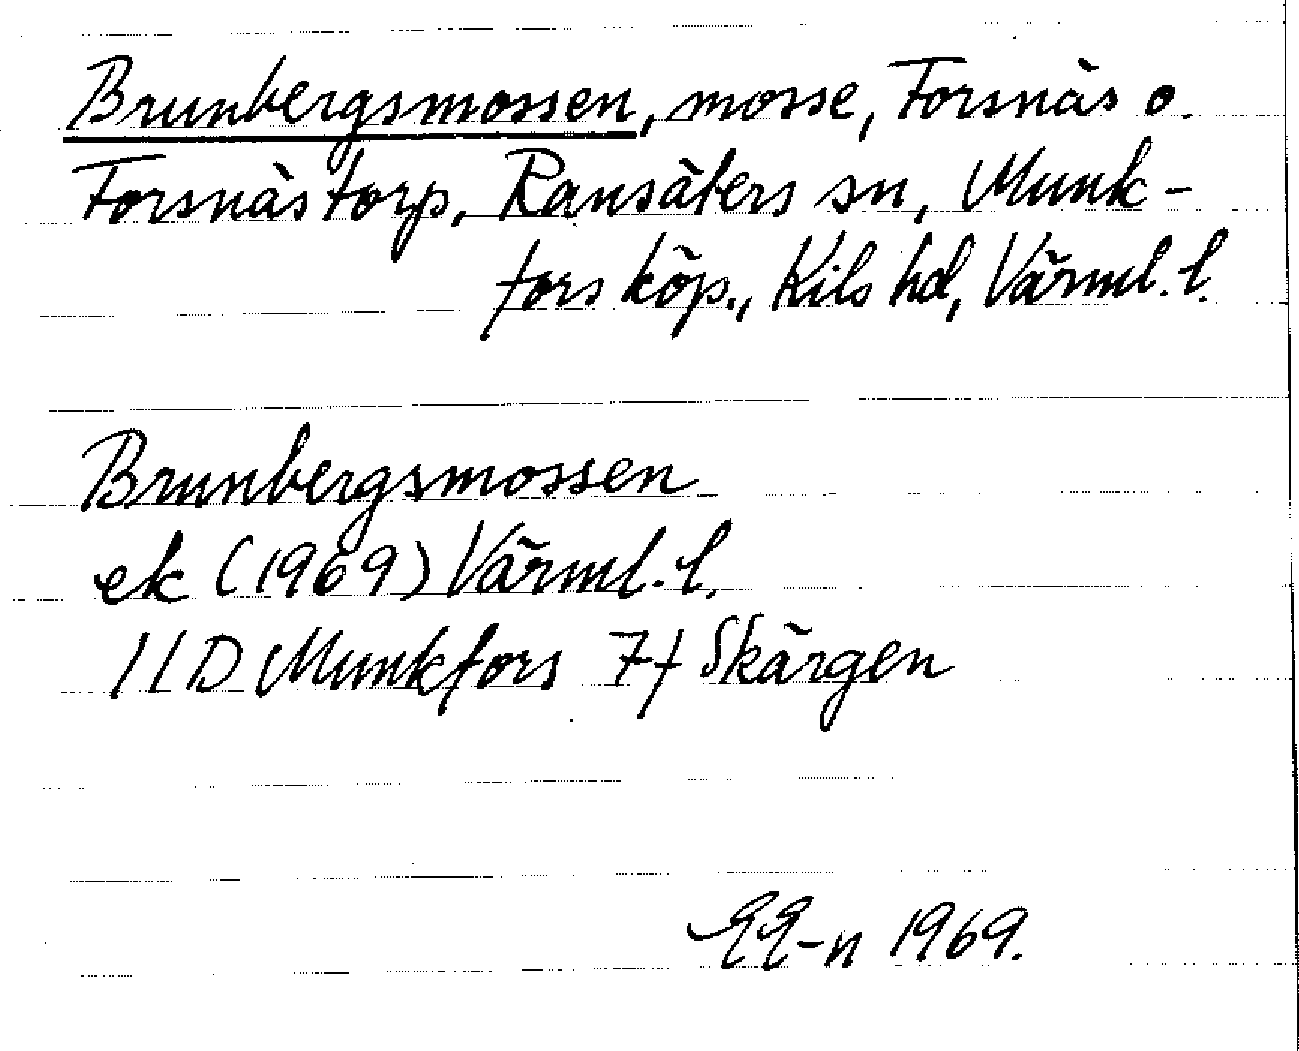 Brunbergsmossen, mosse, Forsnäs o.
Forsnästorp, Ransäters sn, Munk-
fors köp., Kils hd, Värml. l.
Brunbergsmossen
ek (1969) Värml. l.
11D Munkfors 7f Skärgen
EE-n 1969.